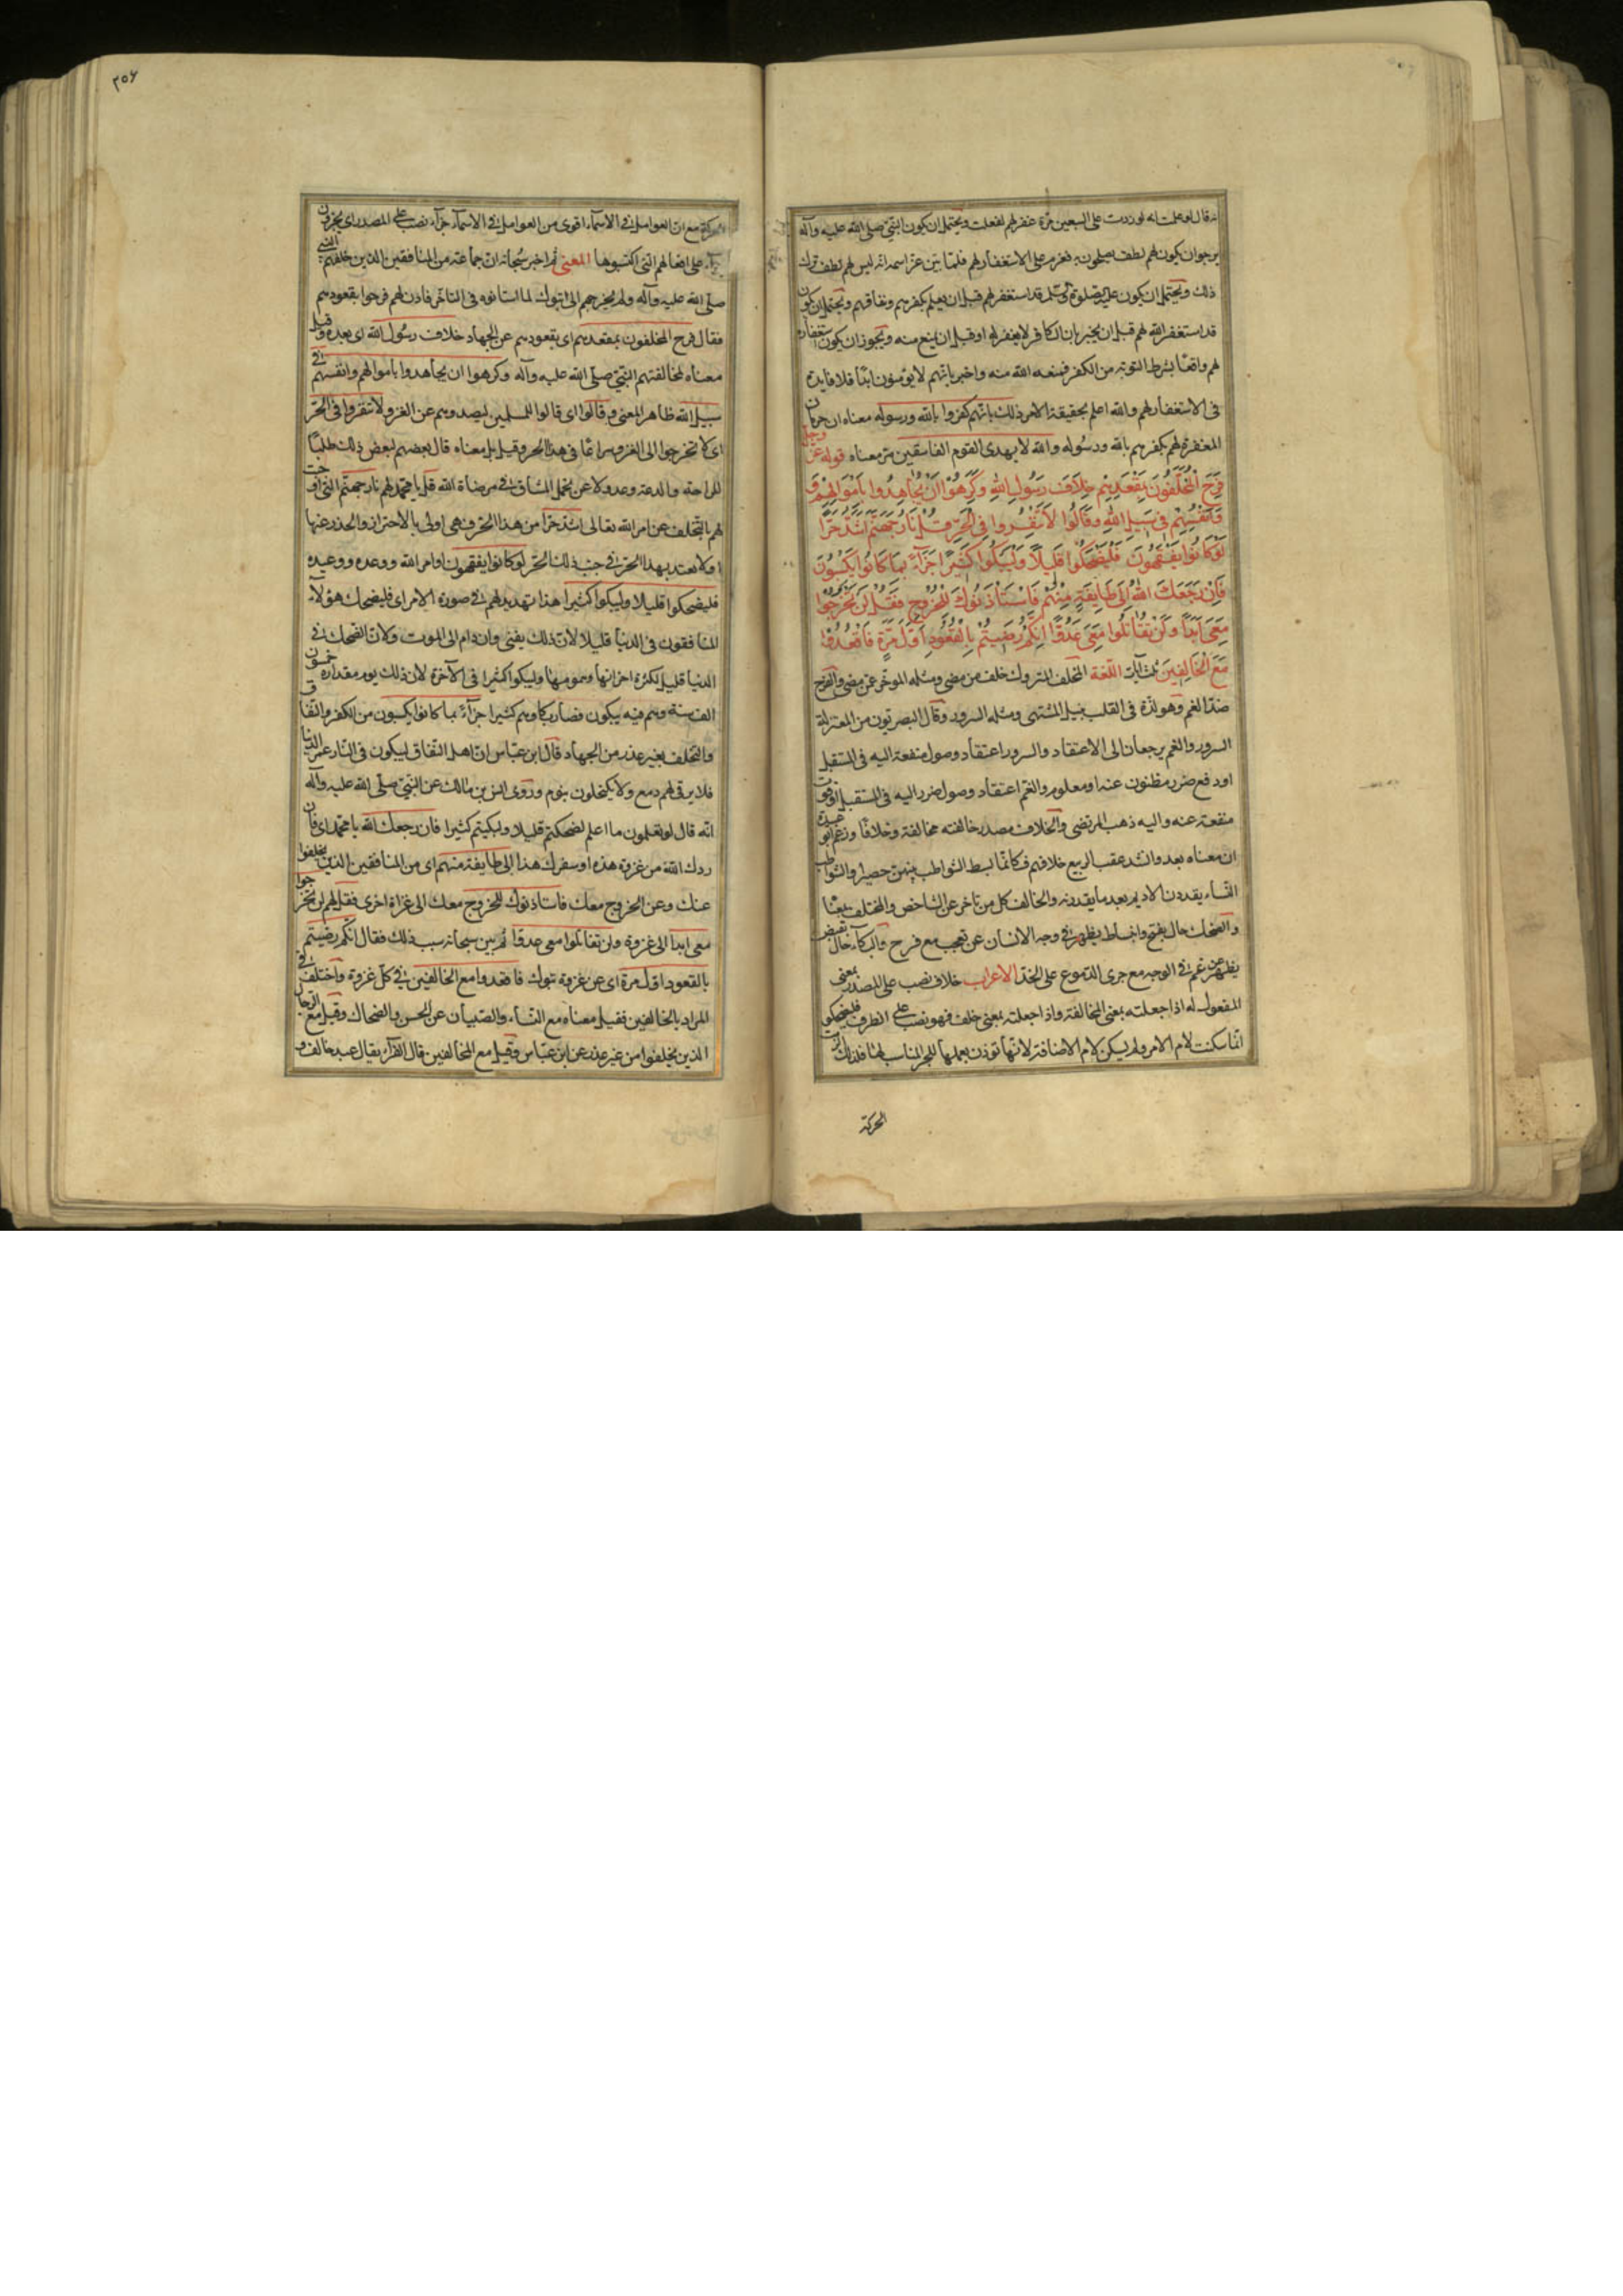 قال لو علمت انه لو زدت على السبعين مرة غفر لهم لفعلت ويحتمل ان يكون النبي صلى الله عليه وآله
يرجو ان يكون لهم لطف يصلحون به فعزم على الاستغفار لهم فلما بين عز اسمه انه ليس لهم لطف ترك
ذلك ويحتمل ان يكون قد استغفر لهم قبل ان يعلم بكفرهم ونفاقهم ويحتمل ان يكون
قد استغفر الله لهم قبل ان يخبر بان الكافر لا يغفر له او قبل ان يمنع منه ويجوز ان يكون استغفاره
لهم واقعا بشرط التوبة من الكفر فمنعه الله منه واخبر بانهم لا يؤمنون ابدا فلا فايدة
فى الاستغفار لهم والله اعلم بحقيقة الامر ذلك بانهم كفروا بالله ورسوله معناه ان حرمان
المغفرة لهم بكفرهم بالله ورسوله والله لا يهدى القوم الفاسقين مر معناه قوله عز وجل
فَرِحَ الْمُخَلَّفُونَ بِمَقْعَدِهِمْ خِلَافَ رَسُولِ اللهِ وَكَرِهُوا اَنْ يُجَاهِدُوا بِاَمْوَالِهِمْ وَ
وَاَنْفُسِهِمْ فِى سَبِيلِ اللهِ وَقَالُوا لَا تَنْفِرُوا فِى الْحَرِّ قُلْ نَارُ جَهَنَّمَ اَشَدُّ حَرًّا
لَوْ كَانُوا يَفْقَهُونَ فَلْيَضْحَكُوا قَلِيلًا وَلْيَبْكُوا كَثِيرًا جَزَآءً بِمَا كَانُوا يَكْسِبُونَ
فَاِنْ رَجَعَكَ اللهُ اِلَى طَايِفَةٍ مِنْهُمْ فَاسْتَأْذَنُوكَ لِلْخُرُوجِ فَقُلْ لَنْ تَخْرُجُوا
مَعِىَ اَبَدًا وَلَنْ تُقَاتِلُوا مَعِىَ عَدُوًّا اِنَّكُمْ رَضِيتُمْ بِالْقُعُودِ اَوَّلَ مَرَّةٍ فَاقْعُدُوا
مَعَ الْخَالِفِينَ ثلث آيات اللغة المخلف المتروك خلف من مضى ومثله المؤخر عن مضى والفرح
ضد الغم وهو لذة فى القلب بنيل المشتهى ومثله السرور وقال البصريون من المعتزلة
السرور والغم يرجعان الى الاعتقاد والسرور اعتقاد وصول منفعة اليه فى المستقبل
او دفع ضرر مظنون عنه او معلوم والغم اعتقاد وصول ضرر اليه فى المستقبل او فوت
منفعة عنه واليه ذهب المرتضى والخلاف مصدر خالفته مخالفة وخلافا وزعم ابو عبيدة
ان معناه بعد وانشد عقب الربيع خلافهم فكانما بسط الشواطب بينهن حصيرا والشواطب
النساء يقددن الاديم بعد ما يقددنه والخالف كل من تاخر عن الشاخص
والضحك حال تفتح وانبساط يظهر فى وجه الانسان عن تعجب مع فرح والبكاء حال تقبض
يظهر عن غم فى الوجه مع جرى الدموع على الخد الاعراب خلاف نصب على المصدر بمعنى
المفعول له اذا جعلته بمعنى المخالفة واذا جعلته بمعنى خلف فهو نصب على الظرف فليضحكوا
انما سكنت لام الامر ولم يسكن لام الاضافة لانها تؤذن بعملها للجر المناسب لها فلذلك الزمت
الحركة
٢٥٤
الحركة مع ان العوامل فى الاسماء اقوى من العوامل فى الاسماء جزاء نصب على المصدر اى يجزون
جزاء على افعالهم التى اكتسبوها المعنى ثم اخبر سبحانه ان جماعة من المنافقين الذين خلفهم النبى
صلى الله عليه وآله ولم يخرجهم الى تبوك لما استاذنوه فى التاخر فاذن لهم فرحوا بقعودهم
فقال فرح المخلفون بمقعدهم اى بقعودهم عن الجهاد خلاف رسول الله اى بعده وقيل
معناه لمخالفتهم النبى صلى الله عليه وآله وكرهوا ان يجاهدوا باموالهم وانفسهم فى
سبيل الله ظاهر المعنى وقالوا اى قالوا للمسلمين ليصدوهم عن الغزو لا تنفروا فى الحر
اى لا تخرجوا الى الغزو سراعا فى هذا الحر وقيل بل معناه قال بعضهم لبعض ذلك طلبا
للراحة والدعة وعدولا عن تحمل المشاق فى مرضاة الله قل يا محمد لهم نار جهنم التى وجبت
لهم بالتخلف عن امر الله تعالى اشد حرا من هذا الحر فهى اولى بالاحتراز والحذر عنها
اذ لا يعتد بهذا الحر فى جنب ذلك الحر لو كانوا يفقهون اوامر الله ووعده ووعيده
فليضحكوا قليلا وليبكوا كثيرا هذا تهديد لهم فى صورة الامر اى فليضحك هؤلاء
المنافقون فى الدنيا قليلا لان ذلك يفنى وان دام الى الموت ولان الضحك فى
الدنيا قليل لكثرة احزانها وهمومها وليبكوا كثيرا فى الآخرة لان ذلك يوم مقداره خمسون
الف سنة وهم فيه يبكون فصار بكاؤهم كثيرا جزاء بما كانوا يكسبون من الكفر والنفاق
والتخلف بغير عذر من الجهاد قال ابن عباس ان اهل النفاق ليبكون فى النار عمر الدنيا
فلا يرقى لهم دمع ولا يكتحلون بنوم وروى انس بن مالك عن النبى صلى الله عليه وآله
انه قال لو تعلمون ما اعلم لضحكتم قليلا ولبكيتم كثيرا فان رجعك الله يا محمد اى فان
ردك الله من غزوة هذه او سفرك هذا الى طايفة منهم اى من المنافقين الذين تخلفوا
عنك وعن الخروج معك فاستاذنوك للخروج معك الى غزاة اخرى فقل لهم لن تخرجوا
معى ابدا الى غزوة ولن تقاتلوا معى عدوا ثم بين سبحانه سبب ذلك فقال انكم رضيتم
بالقعود اول مرة اى عن غزوة تبوك فاقعدوا مع الخالفين فى كل غزوة واختلف فى
المراد بالخالفين فقيل معناه مع النساء والصبيان عن الحسن والضحاك وقيل مع الرجال
الذين تخلفوا من غير عذر عن ابن عباس وقيل مع المخالفين قال الفراء يقال عبد خالف و